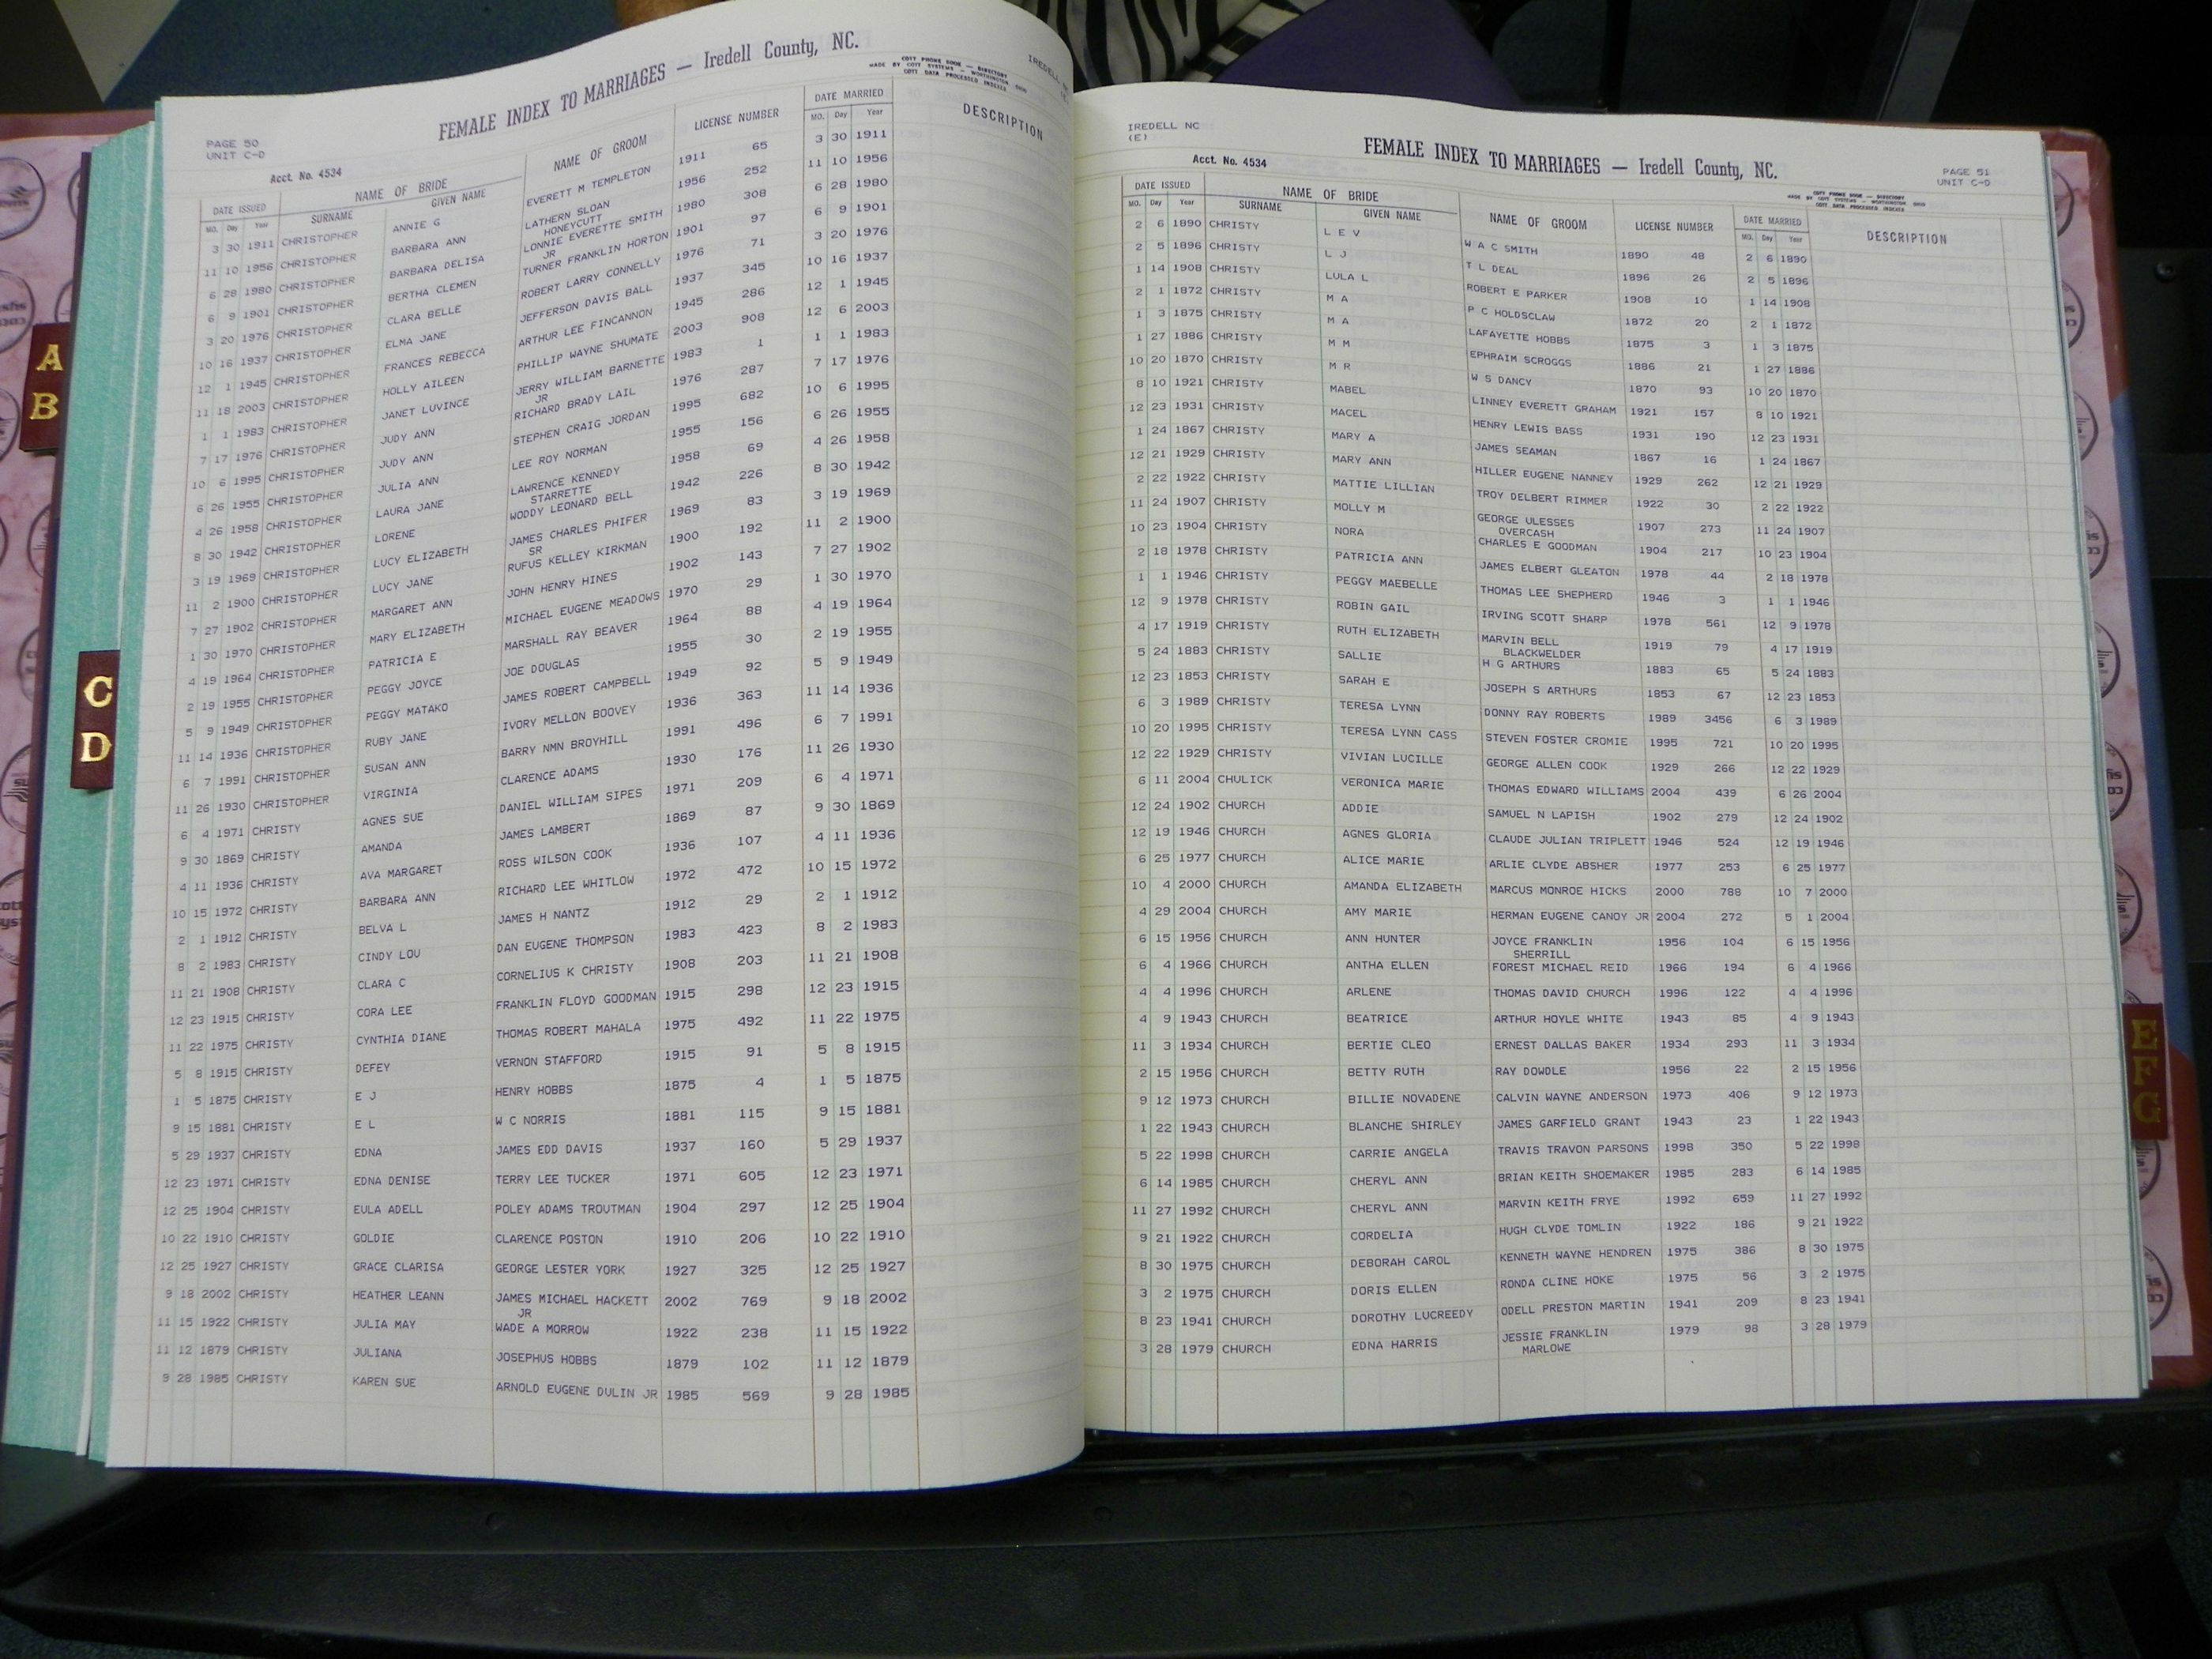 FEMALE INDEX TO MARRIAGES — Iredell County, NC.
COTT PHONE BOOK — DIRECTORY
MADE BY COTT SYSTEMS — WORTHINGTON OHIO
COTT DATA PROCESSED INDEXES
PAGE 50
UNIT C-D
Acct. No. 4534
DATE ISSUED NAME OF BRIDE NAME OF GROOM LICENSE NUMBER DATE MARRIED DESCRIPTION
MO. Day Year SURNAME GIVEN NAME MO. Day Year
3 30 1911 CHRISTOPHER ANNIE G EVERETT M TEMPLETON 1911 65 3 30 1911
11 10 1956 CHRISTOPHER BARBARA ANN LATHERN SLOAN 1956 252 11 10 1956
HONEYCUTT
6 28 1980 CHRISTOPHER BARBARA DELISA LONNIE EVERETTE SMITH 1980 308 6 28 1980
JR
6 9 1901 CHRISTOPHER BERTHA CLEMEN TURNER FRANKLIN HORTON 1901 97 6 9 1901
3 20 1976 CHRISTOPHER CLARA BELLE ROBERT LARRY CONNELLY 1976 71 3 20 1976
10 16 1937 CHRISTOPHER ELMA JANE JEFFERSON DAVIS BALL 1937 345 10 16 1937
12 1 1945 CHRISTOPHER FRANCES REBECCA ARTHUR LEE FINCANNON 1945 286 12 1 1945
11 18 2003 CHRISTOPHER HOLLY AILEEN PHILLIP WAYNE SHUMATE 2003 908 12 6 2003
1 1 1983 CHRISTOPHER JANET LUVINCE JERRY WILLIAM BARNETTE 1983 1 1 1 1983
JR
7 17 1976 CHRISTOPHER JUDY ANN RICHARD BRADY LAIL 1976 287 7 17 1976
10 6 1995 CHRISTOPHER JUDY ANN STEPHEN CRAIG JORDAN 1995 682 10 6 1995
6 26 1955 CHRISTOPHER JULIA ANN LEE ROY NORMAN 1955 156 6 26 1955
4 26 1958 CHRISTOPHER LAURA JANE LAWRENCE KENNEDY 1958 69 4 26 1958
STARRETTE
8 30 1942 CHRISTOPHER LORENE WODDY LEONARD BELL 1942 226 8 30 1942
3 19 1969 CHRISTOPHER LUCY ELIZABETH JAMES CHARLES PHIFER 1969 83 3 19 1969
SR
11 2 1900 CHRISTOPHER LUCY JANE RUFUS KELLEY KIRKMAN 1900 192 11 2 1900
7 27 1902 CHRISTOPHER MARGARET ANN JOHN HENRY HINES 1902 143 7 27 1902
1 30 1970 CHRISTOPHER MARY ELIZABETH MICHAEL EUGENE MEADOWS 1970 29 1 30 1970
4 19 1964 CHRISTOPHER PATRICIA E MARSHALL RAY BEAVER 1964 88 4 19 1964
2 19 1955 CHRISTOPHER PEGGY JOYCE JOE DOUGLAS 1955 30 2 19 1955
5 9 1949 CHRISTOPHER PEGGY MATAKO JAMES ROBERT CAMPBELL 1949 92 5 9 1949
11 14 1936 CHRISTOPHER RUBY JANE IVORY MELLON BOOVEY 1936 363 11 14 1936
6 7 1991 CHRISTOPHER SUSAN ANN BARRY NMN BROYHILL 1991 496 6 7 1991
11 26 1930 CHRISTOPHER VIRGINIA CLARENCE ADAMS 1930 176 11 26 1930
6 4 1971 CHRISTY AGNES SUE DANIEL WILLIAM SIPES 1971 209 6 4 1971
9 30 1869 CHRISTY AMANDA JAMES LAMBERT 1869 87 9 30 1869
4 11 1936 CHRISTY AVA MARGARET ROSS WILSON COOK 1936 107 4 11 1936
10 15 1972 CHRISTY BARBARA ANN RICHARD LEE WHITLOW 1972 472 10 15 1972
2 1 1912 CHRISTY BELVA L JAMES H NANTZ 1912 29 2 1 1912
8 2 1983 CHRISTY CINDY LOU DAN EUGENE THOMPSON 1983 423 8 2 1983
11 21 1908 CHRISTY CLARA C CORNELIUS K CHRISTY 1908 203 11 21 1908
12 23 1915 CHRISTY CORA LEE FRANKLIN FLOYD GOODMAN 1915 298 12 23 1915
11 22 1975 CHRISTY CYNTHIA DIANE THOMAS ROBERT MAHALA 1975 492 11 22 1975
5 8 1915 CHRISTY DEFEY VERNON STAFFORD 1915 91 5 8 1915
1 5 1875 CHRISTY E J HENRY HOBBS 1875 4 1 5 1875
9 15 1881 CHRISTY E L W C NORRIS 1881 115 9 15 1881
5 29 1937 CHRISTY EDNA JAMES EDD DAVIS 1937 160 5 29 1937
12 23 1971 CHRISTY EDNA DENISE TERRY LEE TUCKER 1971 605 12 23 1971
12 25 1904 CHRISTY EULA ADELL POLEY ADAMS TROUTMAN 1904 297 12 25 1904
10 22 1910 CHRISTY GOLDIE CLARENCE POSTON 1910 206 10 22 1910
12 25 1927 CHRISTY GRACE CLARISA GEORGE LESTER YORK 1927 325 12 25 1927
9 18 2002 CHRISTY HEATHER LEANN JAMES MICHAEL HACKETT 2002 769 9 18 2002
JR
11 15 1922 CHRISTY JULIA MAY WADE A MORROW 1922 238 11 15 1922
11 12 1879 CHRISTY JULIANA JOSEPHUS HOBBS 1879 102 11 12 1879
9 28 1985 CHRISTY KAREN SUE ARNOLD EUGENE DULIN JR 1985 569 9 28 1985
A
B
C
D
IREDELL NC
(E)
Acct. No. 4534
FEMALE INDEX TO MARRIAGES — Iredell County, NC.
PAGE 51
UNIT C-D
COTT PHONE BOOK — DIRECTORY
MADE BY COTT SYSTEMS — WORTHINGTON OHIO
COTT DATA PROCESSED INDEXES
DATE ISSUED NAME OF BRIDE NAME OF GROOM LICENSE NUMBER DATE MARRIED DESCRIPTION
MO. Day Year SURNAME GIVEN NAME MO. Day Year
2 6 1890 CHRISTY L E V W A C SMITH 1890 48 2 6 1890
2 5 1896 CHRISTY L J T L DEAL 1896 26 2 5 1896
1 14 1908 CHRISTY LULA L ROBERT E PARKER 1908 10 1 14 1908
2 1 1872 CHRISTY M A P C HOLDSCLAW 1872 20 2 1 1872
1 3 1875 CHRISTY M A LAFAYETTE HOBBS 1875 3 1 3 1875
1 27 1886 CHRISTY M M EPHRAIM SCROGGS 1886 21 1 27 1886
10 20 1870 CHRISTY M R W S DANCY 1870 93 10 20 1870
8 10 1921 CHRISTY MABEL LINNEY EVERETT GRAHAM 1921 157 8 10 1921
12 23 1931 CHRISTY MACEL HENRY LEWIS BASS 1931 190 12 23 1931
1 24 1867 CHRISTY MARY A JAMES SEAMAN 1867 16 1 24 1867
12 21 1929 CHRISTY MARY ANN HILLER EUGENE NANNEY 1929 262 12 21 1929
2 22 1922 CHRISTY MATTIE LILLIAN TROY DELBERT RIMMER 1922 30 2 22 1922
11 24 1907 CHRISTY MOLLY M GEORGE ULESSES 1907 273 11 24 1907
OVERCASH
10 23 1904 CHRISTY NORA CHARLES E GOODMAN 1904 217 10 23 1904
2 18 1978 CHRISTY PATRICIA ANN JAMES ELBERT GLEATON 1978 44 2 18 1978
1 1 1946 CHRISTY PEGGY MAEBELLE THOMAS LEE SHEPHERD 1946 3 1 1 1946
12 9 1978 CHRISTY ROBIN GAIL IRVING SCOTT SHARP 1978 561 12 9 1978
4 17 1919 CHRISTY RUTH ELIZABETH MARVIN BELL 1919 79 4 17 1919
BLACKWELDER
5 24 1883 CHRISTY SALLIE H G ARTHURS 1883 65 5 24 1883
12 23 1853 CHRISTY SARAH E JOSEPH S ARTHURS 1853 67 12 23 1853
6 3 1989 CHRISTY TERESA LYNN DONNY RAY ROBERTS 1989 3456 6 3 1989
10 20 1995 CHRISTY TERESA LYNN CASS STEVEN FOSTER CROMIE 1995 721 10 20 1995
12 22 1929 CHRISTY VIVIAN LUCILLE GEORGE ALLEN COOK 1929 266 12 22 1929
6 11 2004 CHULICK VERONICA MARIE THOMAS EDWARD WILLIAMS 2004 439 6 26 2004
12 24 1902 CHURCH ADDIE SAMUEL N LAPISH 1902 279 12 24 1902
12 19 1946 CHURCH AGNES GLORIA CLAUDE JULIAN TRIPLETT 1946 524 12 19 1946
6 25 1977 CHURCH ALICE MARIE ARLIE CLYDE ABSHER 1977 253 6 25 1977
10 4 2000 CHURCH AMANDA ELIZABETH MARCUS MONROE HICKS 2000 788 10 7 2000
4 29 2004 CHURCH AMY MARIE HERMAN EUGENE CANOY JR 2004 272 5 1 2004
6 15 1956 CHURCH ANN HUNTER JOYCE FRANKLIN 1956 104 6 15 1956
SHERRILL
6 4 1966 CHURCH ANTHA ELLEN FOREST MICHAEL REID 1966 194 6 4 1966
4 4 1996 CHURCH ARLENE THOMAS DAVID CHURCH 1996 122 4 4 1996
4 9 1943 CHURCH BEATRICE ARTHUR HOYLE WHITE 1943 85 4 9 1943
11 3 1934 CHURCH BERTIE CLEO ERNEST DALLAS BAKER 1934 293 11 3 1934
2 15 1956 CHURCH BETTY RUTH RAY DOWDLE 1956 22 2 15 1956
9 12 1973 CHURCH BILLIE NOVADENE CALVIN WAYNE ANDERSON 1973 406 9 12 1973
1 22 1943 CHURCH BLANCHE SHIRLEY JAMES GARFIELD GRANT 1943 23 1 22 1943
5 22 1998 CHURCH CARRIE ANGELA TRAVIS TRAVON PARSONS 1998 350 5 22 1998
6 14 1985 CHURCH CHERYL ANN BRIAN KEITH SHOEMAKER 1985 283 6 14 1985
11 27 1992 CHURCH CHERYL ANN MARVIN KEITH FRYE 1992 659 11 27 1992
9 21 1922 CHURCH CORDELIA HUGH CLYDE TOMLIN 1922 186 9 21 1922
8 30 1975 CHURCH DEBORAH CAROL KENNETH WAYNE HENDREN 1975 386 8 30 1975
3 2 1975 CHURCH DORIS ELLEN RONDA CLINE HOKE 1975 56 3 2 1975
8 23 1941 CHURCH DOROTHY LUCREEDY ODELL PRESTON MARTIN 1941 209 8 23 1941
3 28 1979 CHURCH EDNA HARRIS JESSIE FRANKLIN 1979 98 3 28 1979
MARLOWE
E
F
G